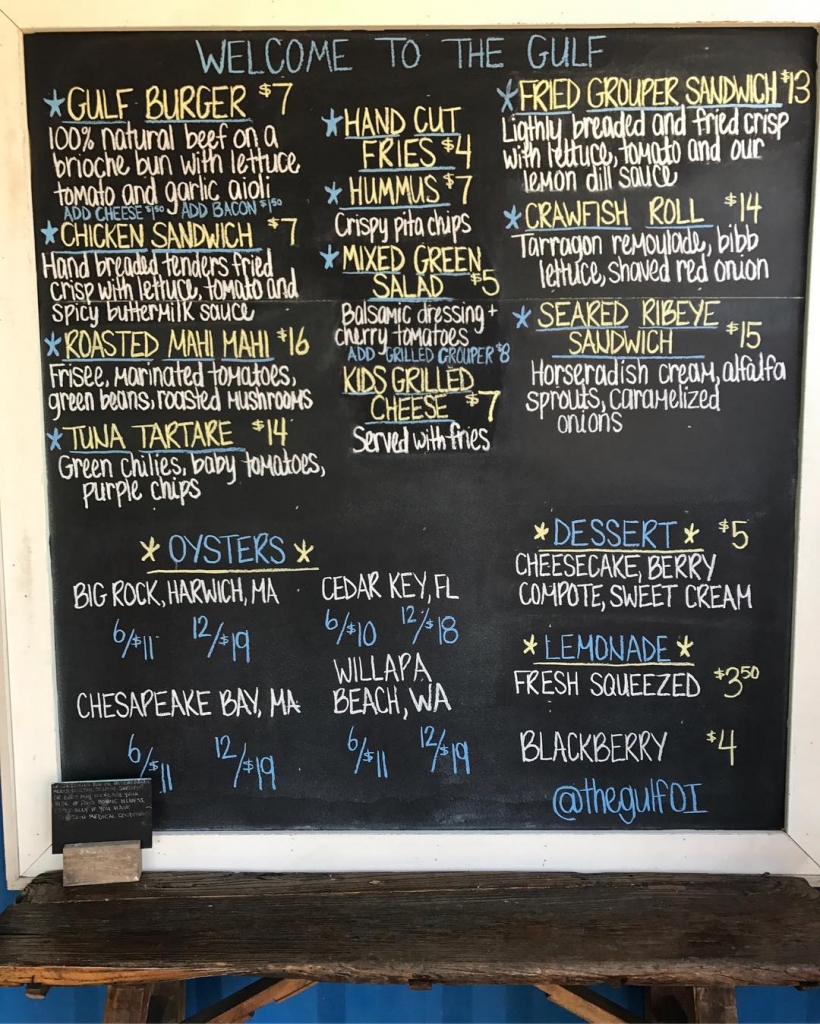 WELCOME TO THE GULF
*GULF BURGER $7
100% natural beef on a
brioche bun with lettuce
tomato and garlic aioli
ADD CHEESE $1.50 ADD BACON $1.50
*CHICKEN SANDWICH $7
Hand breaded tenders fried
crisp with lettuce, tomato and
spicy buttermilk sauce
*ROASTED MAHI MAHI $16
Frisee, marinated tomatoes,
green beans, roasted mushrooms
*TUNA TARTARE $14
Green chilies, baby tomatoes,
purple chips
*HAND CUT
FRIES $4
*HUMMUS $7
Crispy pita chips
*MIXED GREEN
SALAD $5
Balsamic dressing +
cherry tomatoes
ADD GRILLED GROUPER $8
KIDS GRILLED
CHEESE $7
Served with fries
*FRIED GROUPER SANDWICH $13
Ligthly breaded and fried crisp
with lettuce, tomato and our
lemon dill sauce
*CRAWFISH ROLL $14
Tarragon remoulade, bibb
lettuce, shaved red onion
*SEARED RIBEYE
SANDWICH $15
Horseradish cream, alfalfa
sprouts, caramelized
onions
*OYSTERS*
BIG ROCK, HARWICH, MA
6/$11 12/$19
CEDAR KEY, FL
6/$10 12/$18
CHESAPEAKE BAY, MA
6/$11 12/$19
WILLAPA
BEACH, WA
6/$11 12/$19
*DESSERT* $5
CHEESECAKE, BERRY
COMPOTE, SWEET CREAM
*LEMONADE*
FRESH SQUEEZED $3.50
BLACKBERRY $4
@thegulfOI